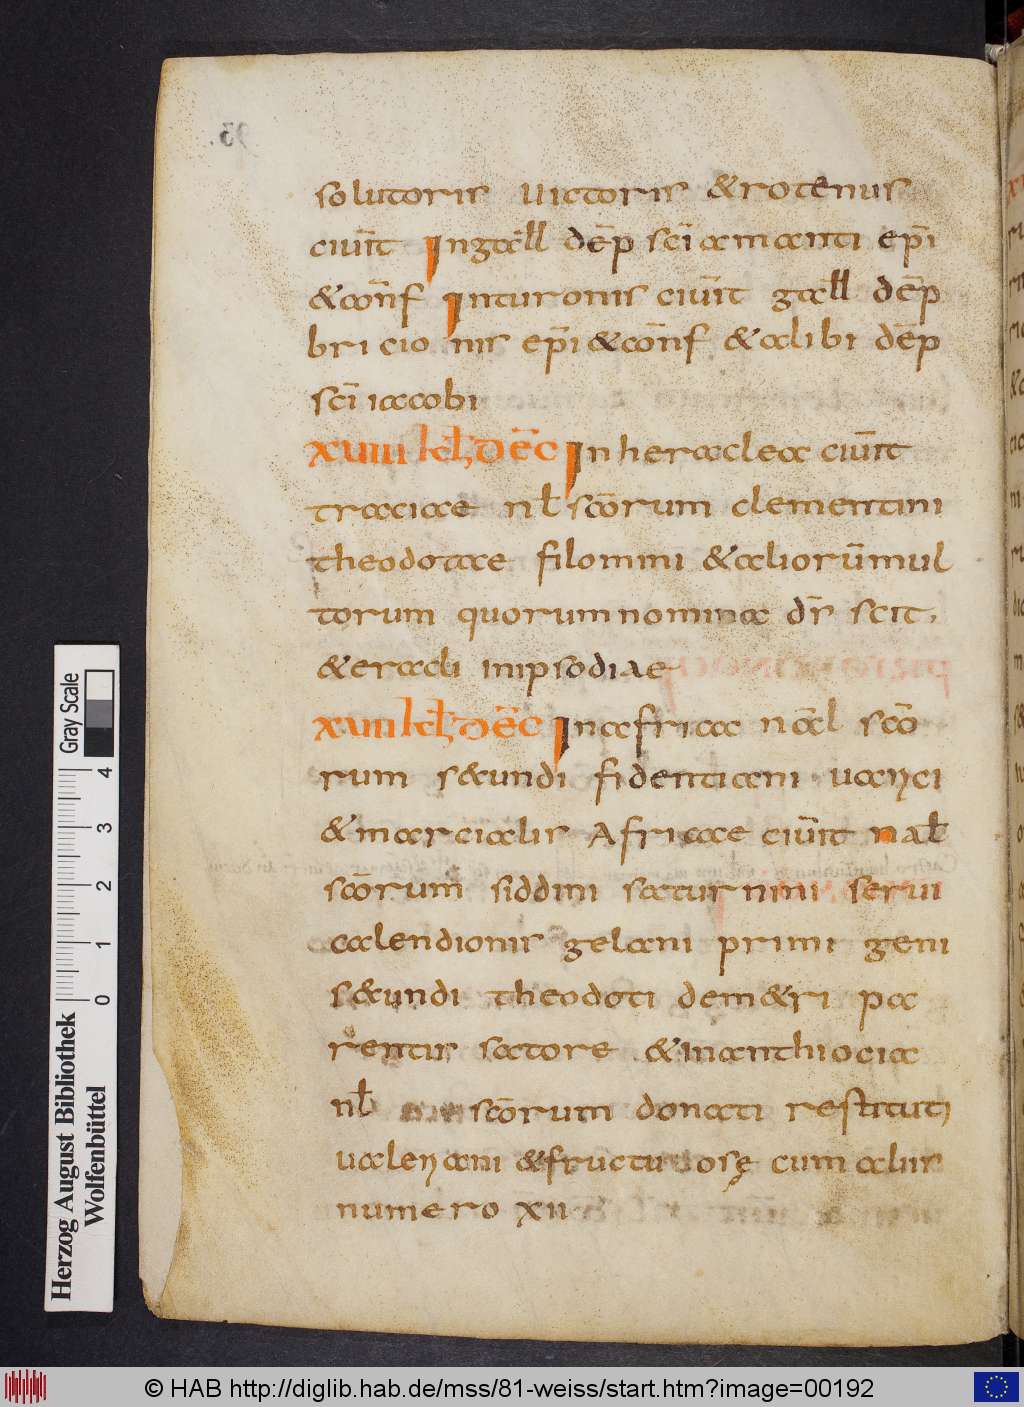 solutoris uictoris &rotenus
ciuīt Ingall dēp scī amanti epī
&cōnf Inturonis ciuīt gall dēp
bricionis epī &cōnf &alibi dēp
scī iacobi
XVIII kł DĒC In heraclea ciuīt
traciae nł scōrum clementini
theodotae filomini &aliorūmul
torum quorum nomina dr̄ scit.
&eracli inipsodiae
XVII kł DĒC In africa nāl scō
rum s&undi fidentiani uarici
&marcialis Africae ciuīt nał
scōrum siddini saturnini serui
calendionis gelani primi geni
s&undi theodoti dem&ri pa
rentis satore &inanthiocia
nł scōrum donati restituti
ualeriani &fructuosę cum aliis
numero xii
Herzog August Bibliothek
Wolfenbüttel
Gray Scale
0 1 2 3 4
© HAB http://diglib.hab.de/mss/81-weiss/start.htm?image=00192